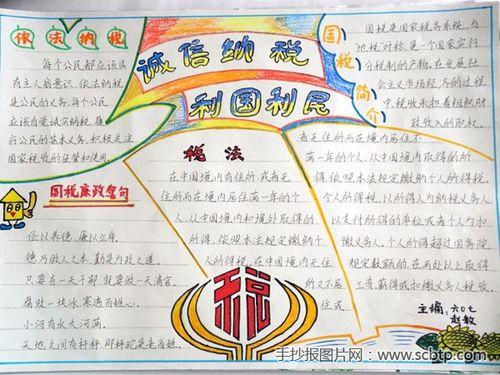 依法纳税
每个公民都应该具
有主人翁意识,依法纳税
是公民的义务,每个公民
应该自觉诚实纳税,履
行公民的基本义务,积极关注
国家税收的征管和使用。
诚信纳税
利国利民
国税简介
国税是国家税务系统,与
地税对称,是一个国家实行
分税制的产物。在发展社
会主义市场经济的过程
中,税收承担着组织财
政收入的职权。
国税廉政警句
俭以养德,廉以立身。
德乃做人之本,勤是为政之道。
只要当一天干部,就要做一天清官。
腐败一块冰,寒透百姓心。
小河有水大河满。
天地之间有杆秤,那秤砣是老百姓。
税法
在中国境内有住所,或者无
住所而在境内居住满一年的个
人,从中国境内和境外取得的
所得,依照本法规定缴纳个
人所得税。在中国境内无住
所又不居
住或
者无住所而在境内居住不
满一年的个人,从中国境内取得的所
得,依照本法规定缴纳个人所得税。
个人所得税,以所得人为纳税义务人,
以支付所得的单位或者个人为扣
缴义务人。个人所得超过国务院
规定数额的,在两处以上取得
工资、薪得或和缴义务人税收,
税
主编:六〇七
赵敏
手抄报图片网:www.scbtp.com